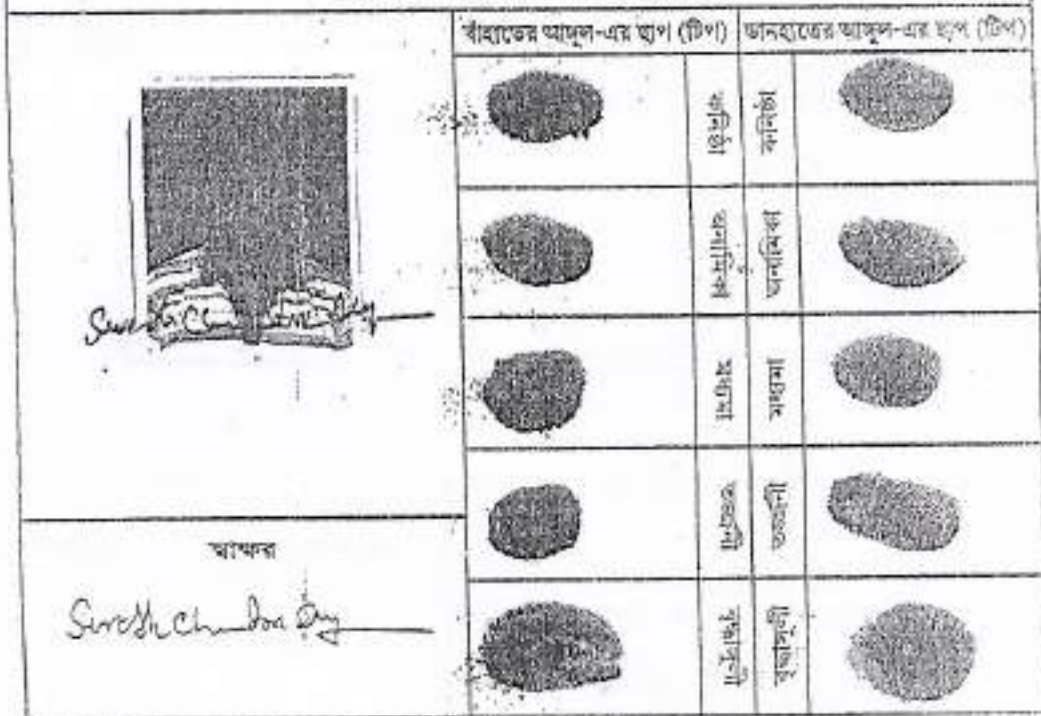 বাঁহাতের আঙ্গুল-এর ছাপ (টিপ) ডানহাতের আঙ্গুল-এর ছাপ (টিপ)
কনিষ্ঠা কনিষ্ঠা
অনামিকা অনামিকা
মধ্যমা মধ্যমা
তর্জ্জনী তর্জ্জনী
বৃদ্ধাঙ্গুলী বৃদ্ধাঙ্গুলী
স্বাক্ষর
Suresh Chandra Dey